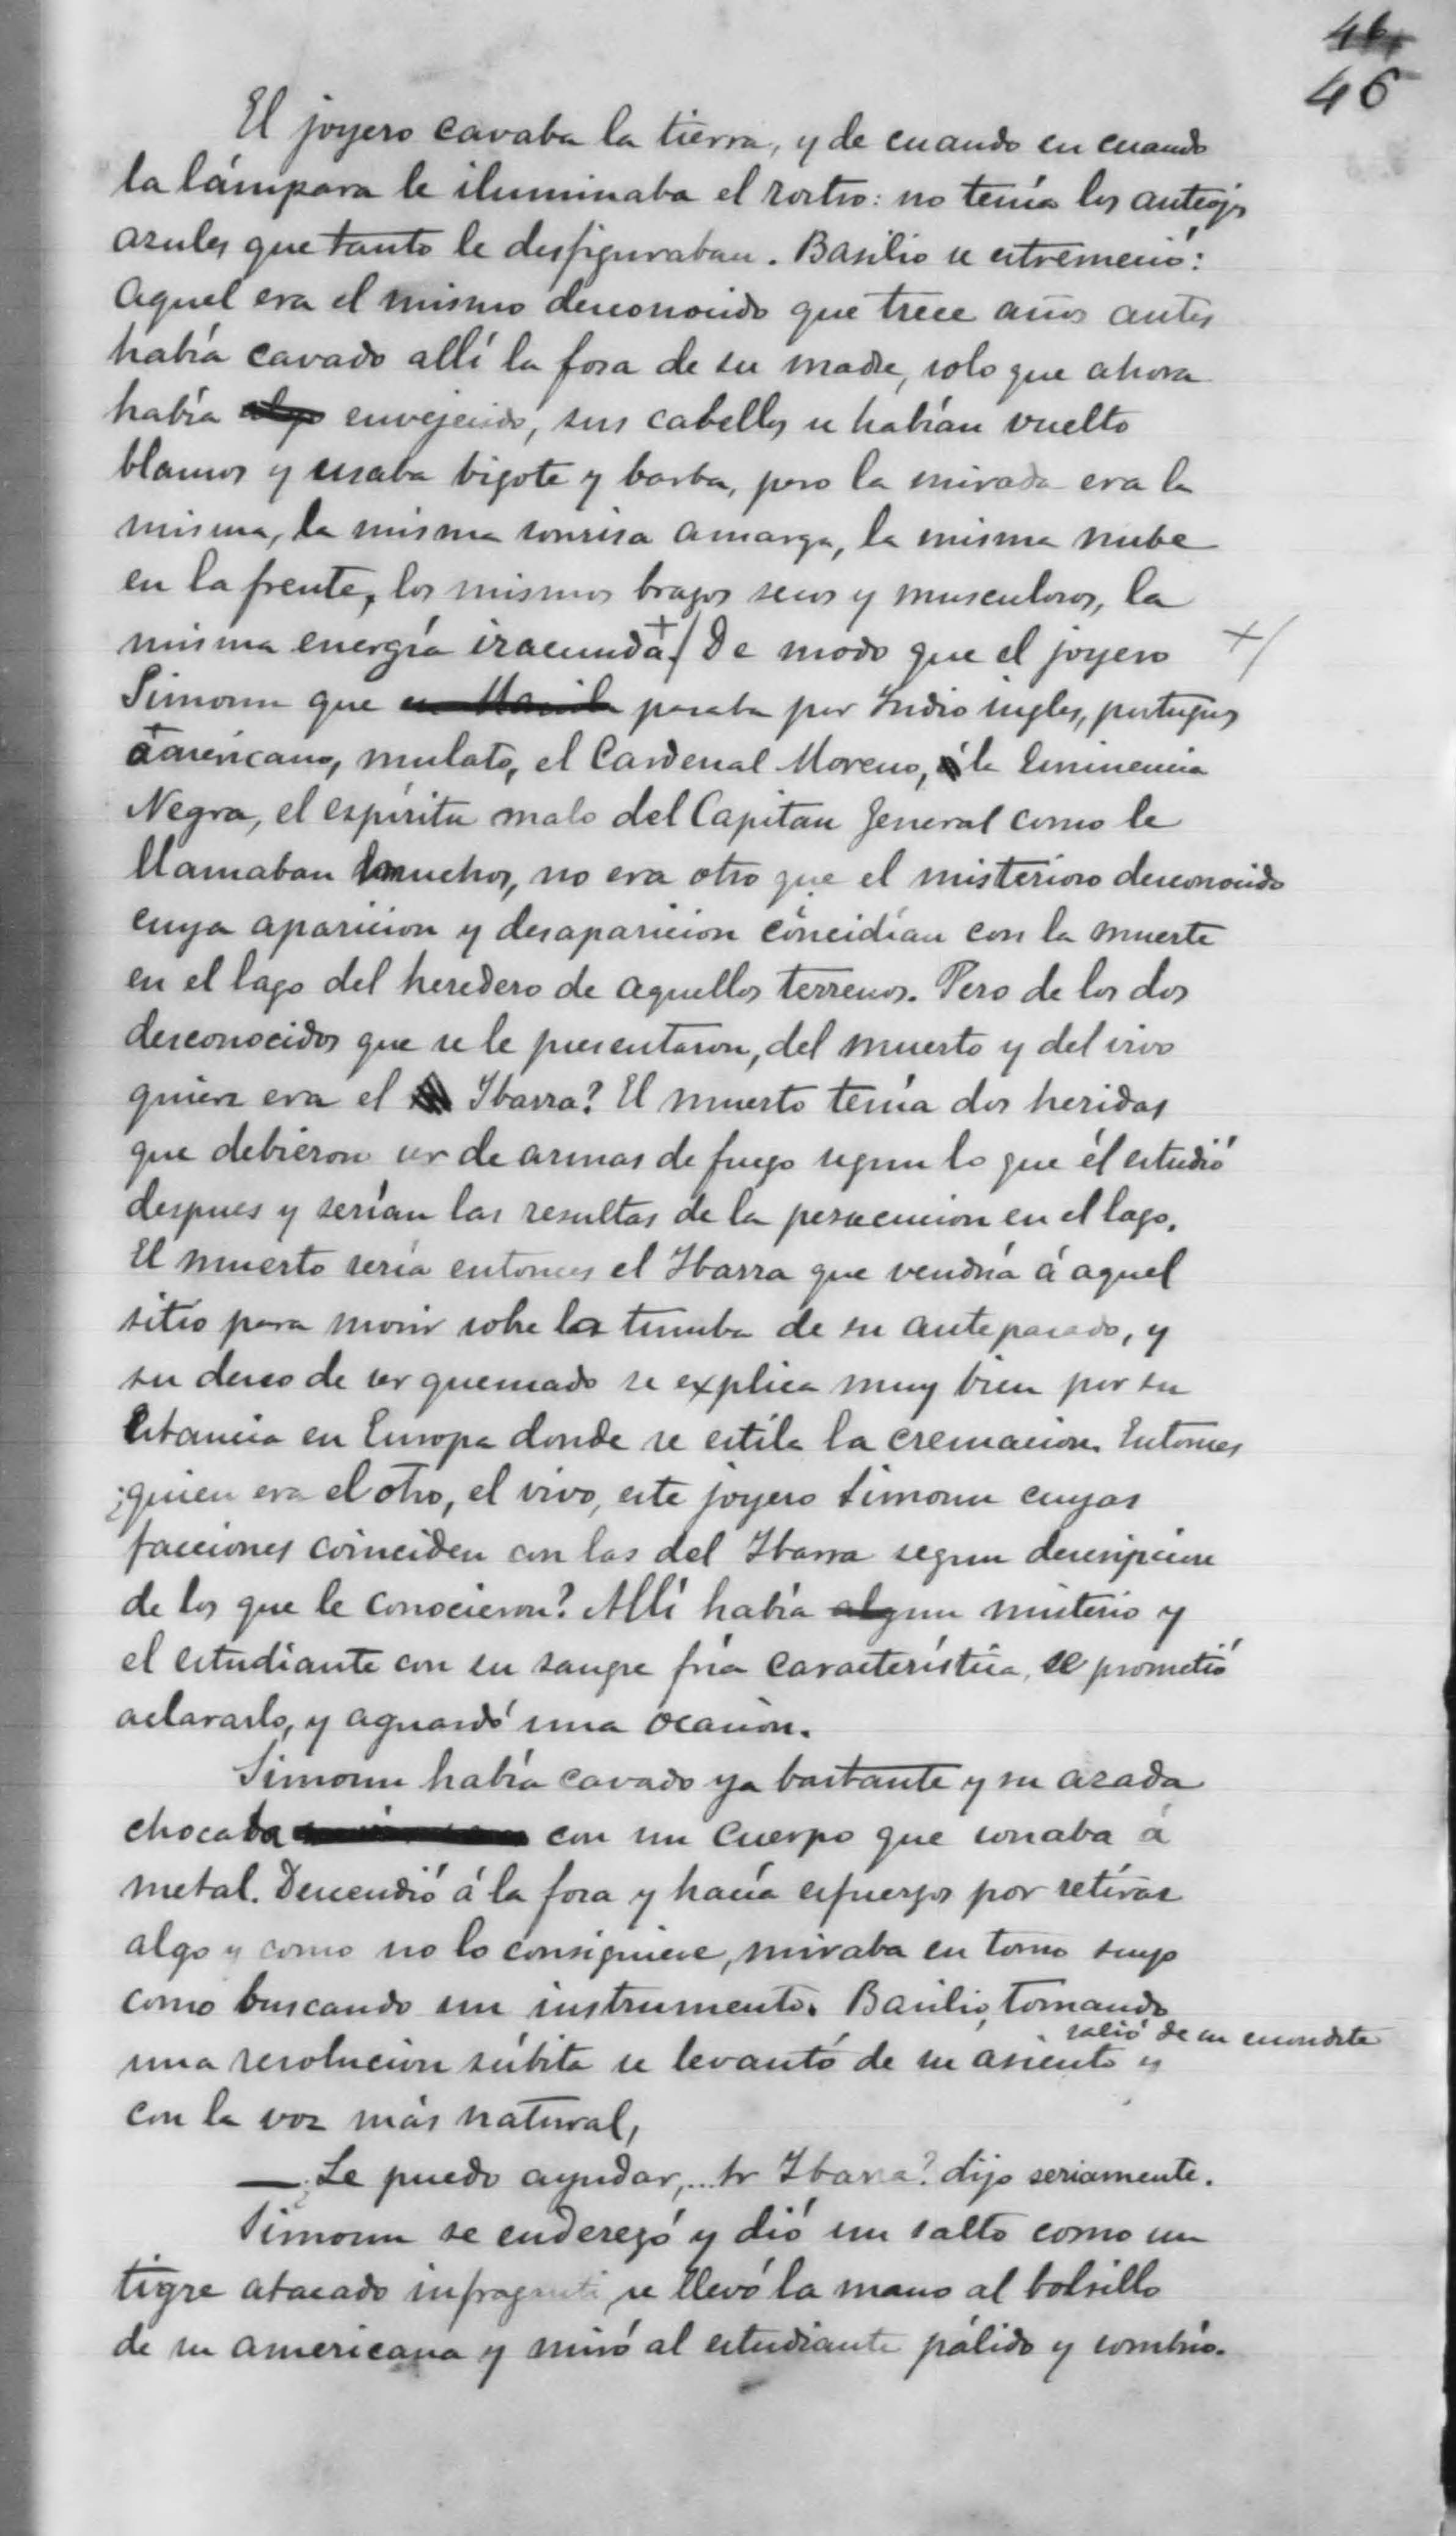 46
46
El joyero cavaba la tierra, y de cuando en cuando
la lámpara le iluminaba el rostro: no tenía los anteojos
azules que tanto le desfiguraban. Basilio se estremeció:
Aquel era el mismo desconocido que trece años antes
había cavado allí la fosa de su madre, solo que ahora
había algo envejecido, sus cabellos se habían vuelto
blancos y usaba bigote y barba, pero la mirada era la
misma, la misma sonrisa amarga, la misma nube
en la frente, los mismos brazos secos y musculosos, la
misma energía iracunda.+/ De modo que el joyero +/
Simoun que en Manila pasaba por Indio ingles, portugues
americano, mulato, el Cardenal Moreno, la Eminencia
Negra, el espíritu malo del Capitan General como le
llamaban muchos, no era otro que el misterioso desconocido
cuya aparicion y desaparicion coincidían con la muerte
en el lago del heredero de aquellos terrenos. Pero de los dos
desconocidos que se le presentaron, del muerto y del vivo
quien era el Ibarra? El muerto tenía dos heridas
que debieron ser de armas de fuego segun lo que él estudió
despues y serían las resultas de la persecucion en el lago.
El muerto sería entonces el Ibarra que vendría á aquel
sitio para morir sobre la tumba de su antepasado, y
su deseo de ser quemado se explica muy bien por su
Estancia en Europa donde se estila la cremacion. Entonces
¿quien era el otro, el vivo, este joyero Simoun cuyas
facciones coinciden con las del Ibarra segun descripcion
de los que le conocieron? Allí había algun misterio y
el estudiante con su sangre fría característica, se prometió
aclararlo, y aguardó una ocasion.
Simoun había cavado ya bastante y su azada
chocaba con un cuerpo que sonaba á
metal. Descendió á la fosa y hacía esfuerzos por retirar
algo y como no lo consiguiese, miraba en torno suyo
como buscando un instrumento. Basilio, tomando
salió de su escondite
una resolucion súbita se levantó de su asiento y
con la voz más natural,
— ¿Le puedo ayudar,... Sr Ibarra? dijo seriamente.
Simoun se enderezó y dió un salto como un
tigre atacado infraganti, se llevó la mano al bolsillo
de su americana y miró al estudiante pálido y sombrío.